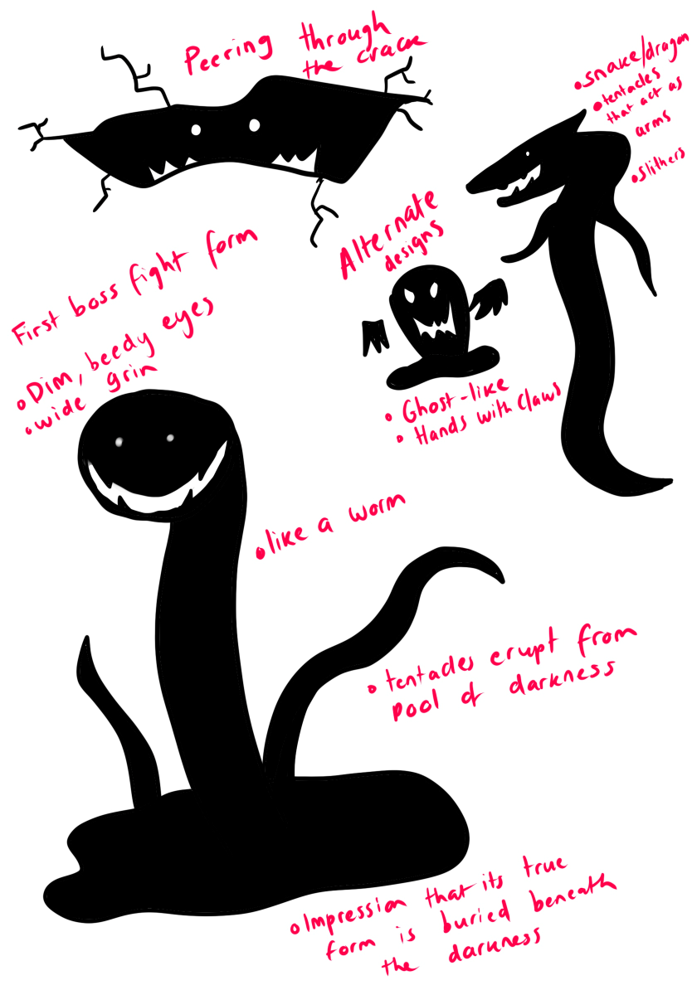 Peering through
the crack
• snake/dragon
• tentacles
that act as
arms
• slithers
Alternate
designs
• Ghost-like
• Hands with claws
First boss fight form
• Dim, beedy eyes
• wide grin
• like a worm
• tentacles erupt from
pool of darkness
• Impression that its true
form is buried beneath
the darkness